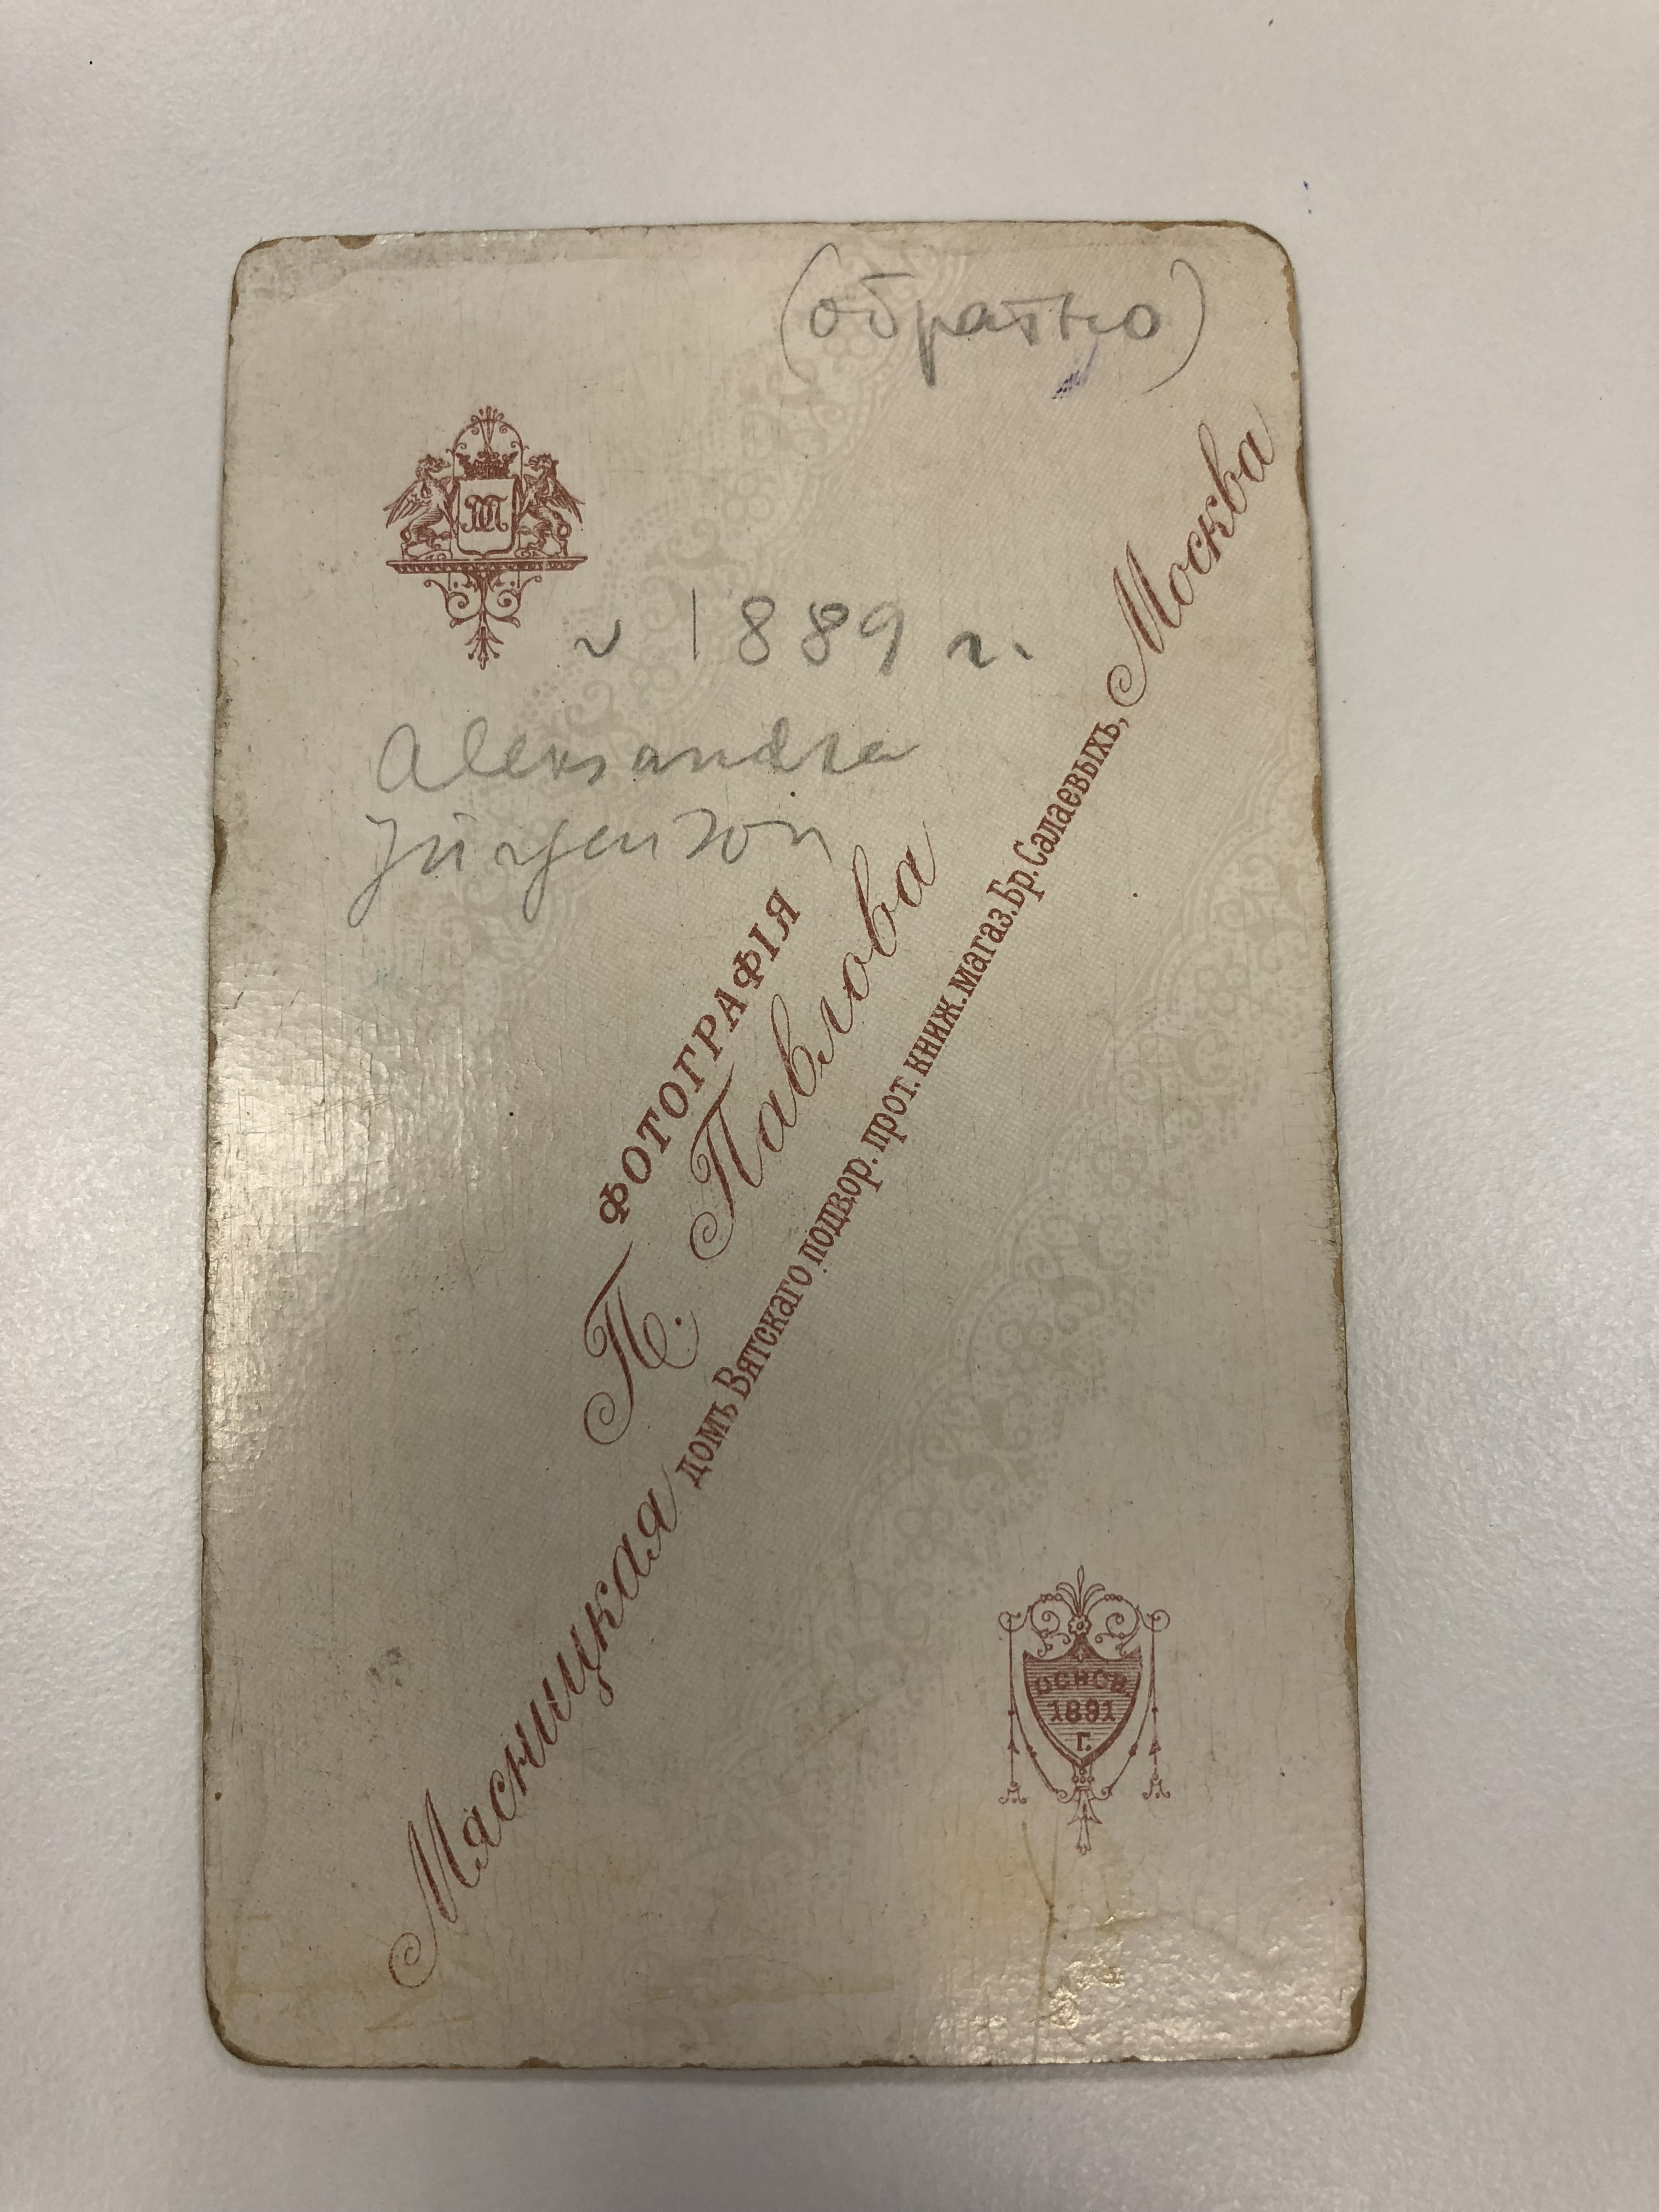 (обратно)
ПП
~ 1889 г.
Aleksandra
Jürgenson
ФОТОГРАФІЯ
П. Павлова
Мясницкая домъ Вятскаго подвор. прот. книж. магаз. Бр. Салаевыхъ, Москва
ОСНОВ.
1891
Г.